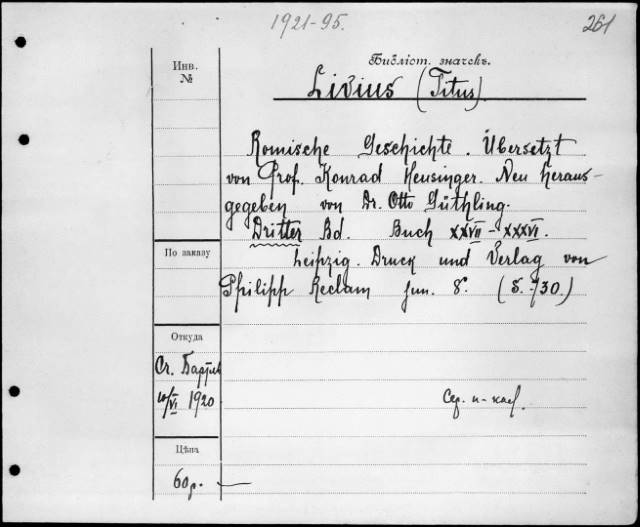 1921-95.
261
Инв.
№
Библіот. значекъ.
Livius (Titus).
Römische Geschichte. Übersetzt
von Prof. Konrad Heusinger. Neu heraus-
gegeben von Dr. Otto Güthling.
Dritter Bd. Buch XXVII-XXXVI.
Leipzig. Druck und Verlag von
Philipp Reclam jun. 8. (S. 730.)
По заказу
Откуда
Ст.
10/VI 1920
Сер. н-
Цѣна
60р. —